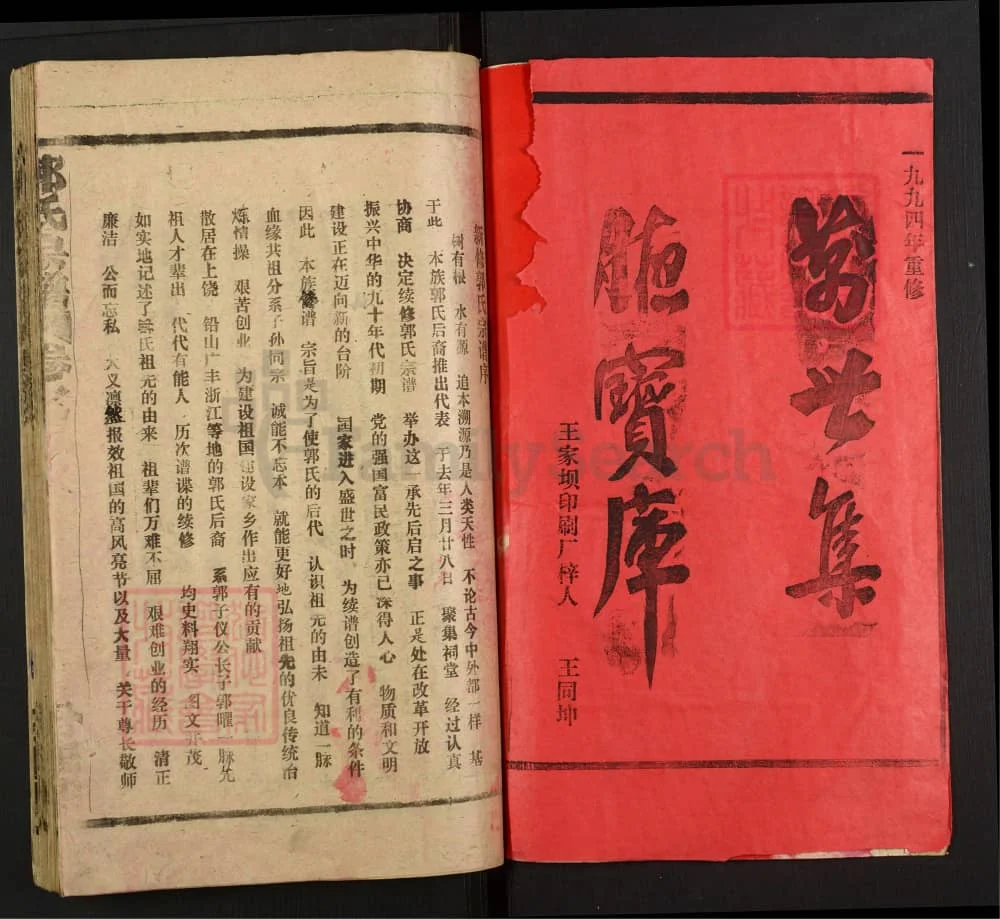 一九九四年重修
萬世集
寶庫
王家坝印刷厂梓人 王同坤
新修郭氏宗谱序
树有根 水有源 追本溯源乃是人类天性 不论古今中外都一样 基
于此 本族郭氏后裔推出代表 于去年三月廿八日 聚集祠堂 经过认真
协商 决定续修郭氏宗谱 举办这一承先后启之事 正是处在改革开放
振兴中华的九十年代初期 党的强国富民政策亦已深得人心 物质和文明
建设正在迈向新的台阶 国家进入盛世之时 为续谱创造了有利的条件
因此 本族修谱 宗旨是为了使郭氏的后代 认识祖元的由未 知道一脉
血缘共祖分系子孙同宗 诚能不忘本 就能更好地弘扬祖先的优良传统冶
炼情操 艰苦创业 为建设祖国建设家乡作出应有的贡献
散居在上饶 铅山广丰浙江等地的郭氏后裔 系郭子仪公长子郭曜一脉先
祖人才辈出 代代有能人 历次谱谍的续修 均史料翔实 图文并茂
如实地记述了郭氏祖元的由来 祖辈们万难不屈 艰难创业的经历 清正
廉洁 公而忘私 大义凛然报效祖国的高风亮节以及大量 关于尊长敬师
FamilySearch